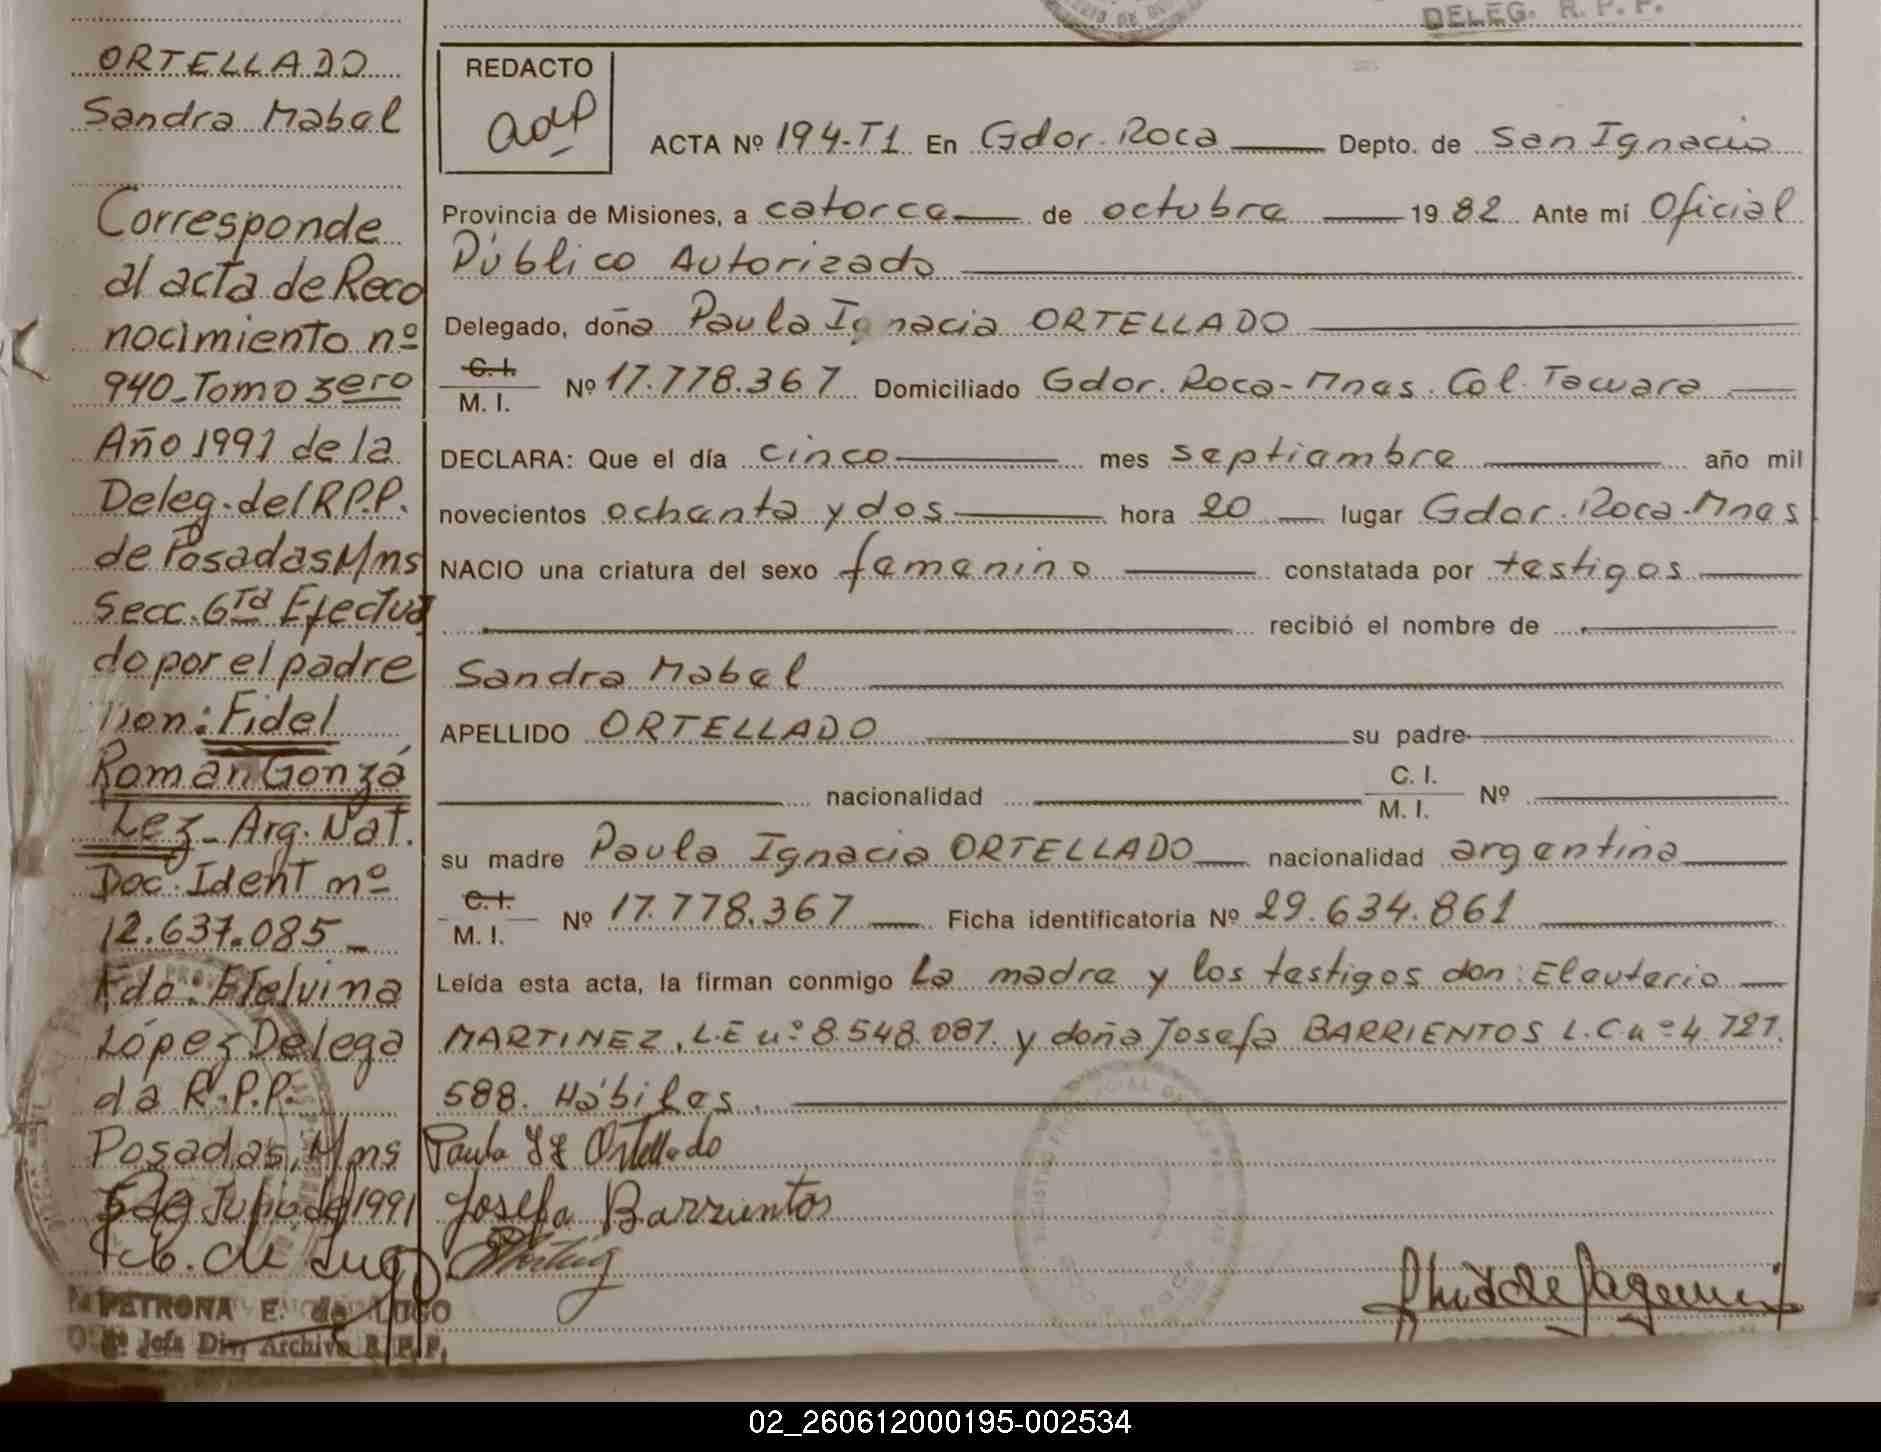 DELEG. R. P. P.
ORTELLADO
Sandra Mabel
Corresponde
al acta de Reco
nocimiento nº
940_Tomo 3ero
Año 1991 de la
Deleg. del R.P.P.
de Posadas Mns
Secc. 6ta Efectua
do por el padre
Don: Fidel
Román Gonzá
lez_ Arg. Nat.
Doc. Ident nº
12.637.085_
Fdo: Etelvina
López Delega
da R.P.P.
Posadas, Mns
5 de Julio de 1991
PETRONA E. de LUGO
Jefa Div. Archivo R.P.P.
REDACTO
ACTA Nº 194-T1 En Gdor. Roca Depto. de San Ignacio
Provincia de Misiones, a catorce de octubre 1982 Ante mí Oficial
Público Autorizado
Delegado, doña Paula Ignacia ORTELLADO
C.I.
M. I. Nº 17.778.367 Domiciliado Gdor. Roca-Mnes. Col. Tacuara
DECLARA: Que el día cinco mes septiembre año mil
novecientos ochenta y dos hora 20 lugar Gdor. Roca-Mnes
NACIO una criatura del sexo femenino constatada por testigos
recibió el nombre de
Sandra Mabel
APELLIDO ORTELLADO su padre
nacionalidad C. I. M. I. Nº
su madre Paula Ignacia ORTELLADO nacionalidad argentina
C.I.
M. I. Nº 17.778.367 Ficha identificatoria Nº 29.634.861
Leída esta acta, la firman conmigo la madre y los testigos don: Eleuterio
MARTINEZ, L.E nº 8.548.087. y doña Josefa BARRIENTOS L.C nº 4.727.
588. Hábiles.
Paula Ig Ortellado
Josefa Barrientos
02_260612000195-002534